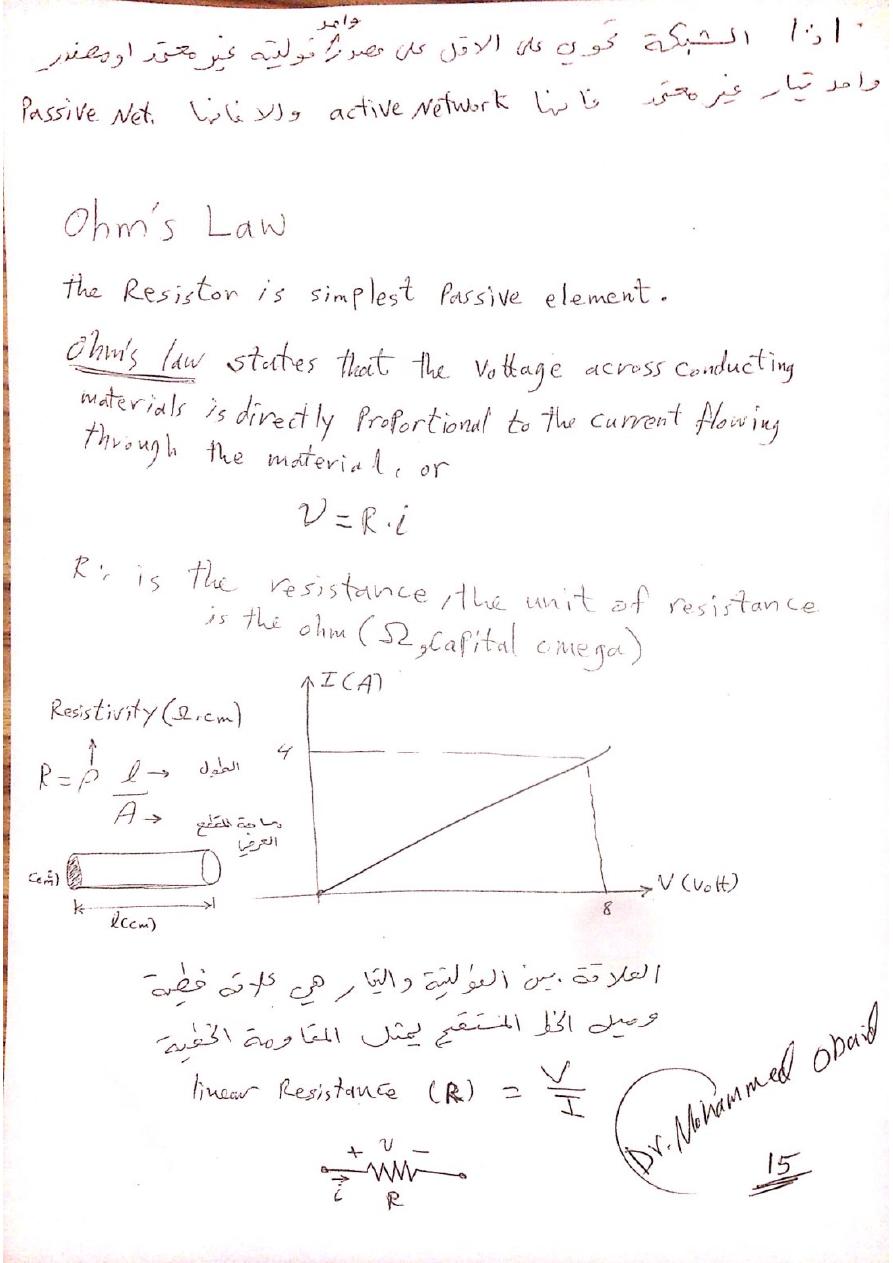 واحد
اذا الشبكة تحوي على الاقل على مصدر فولتية غير معتمد او مصدر
واحد تيار غير معتمد فانها active Network والا فانها Passive Net.
Ohm's Law
the Resistor is simplest Passive element.
Ohm's law states that the Voltage across conducting
materials is directly Proportional to the current flowing
through the material, or
V = R.i
R: is the resistance, the unit of resistance
is the ohm (Ω, Capital omega)
I(A)
Resistivity (Ω.cm)
4
R = ρ l → الطول
A → مساحة المقطع
العرضي
V (Volt)
8
l(cm)
العلاقة بين الفولتية والتيار هي علاقة خطية
وميل الخط المستقيم يمثل المقاومة الخطية
linear Resistance (R) = V
I
+ v -
i
R
Dr. Mohammed Obaid
15